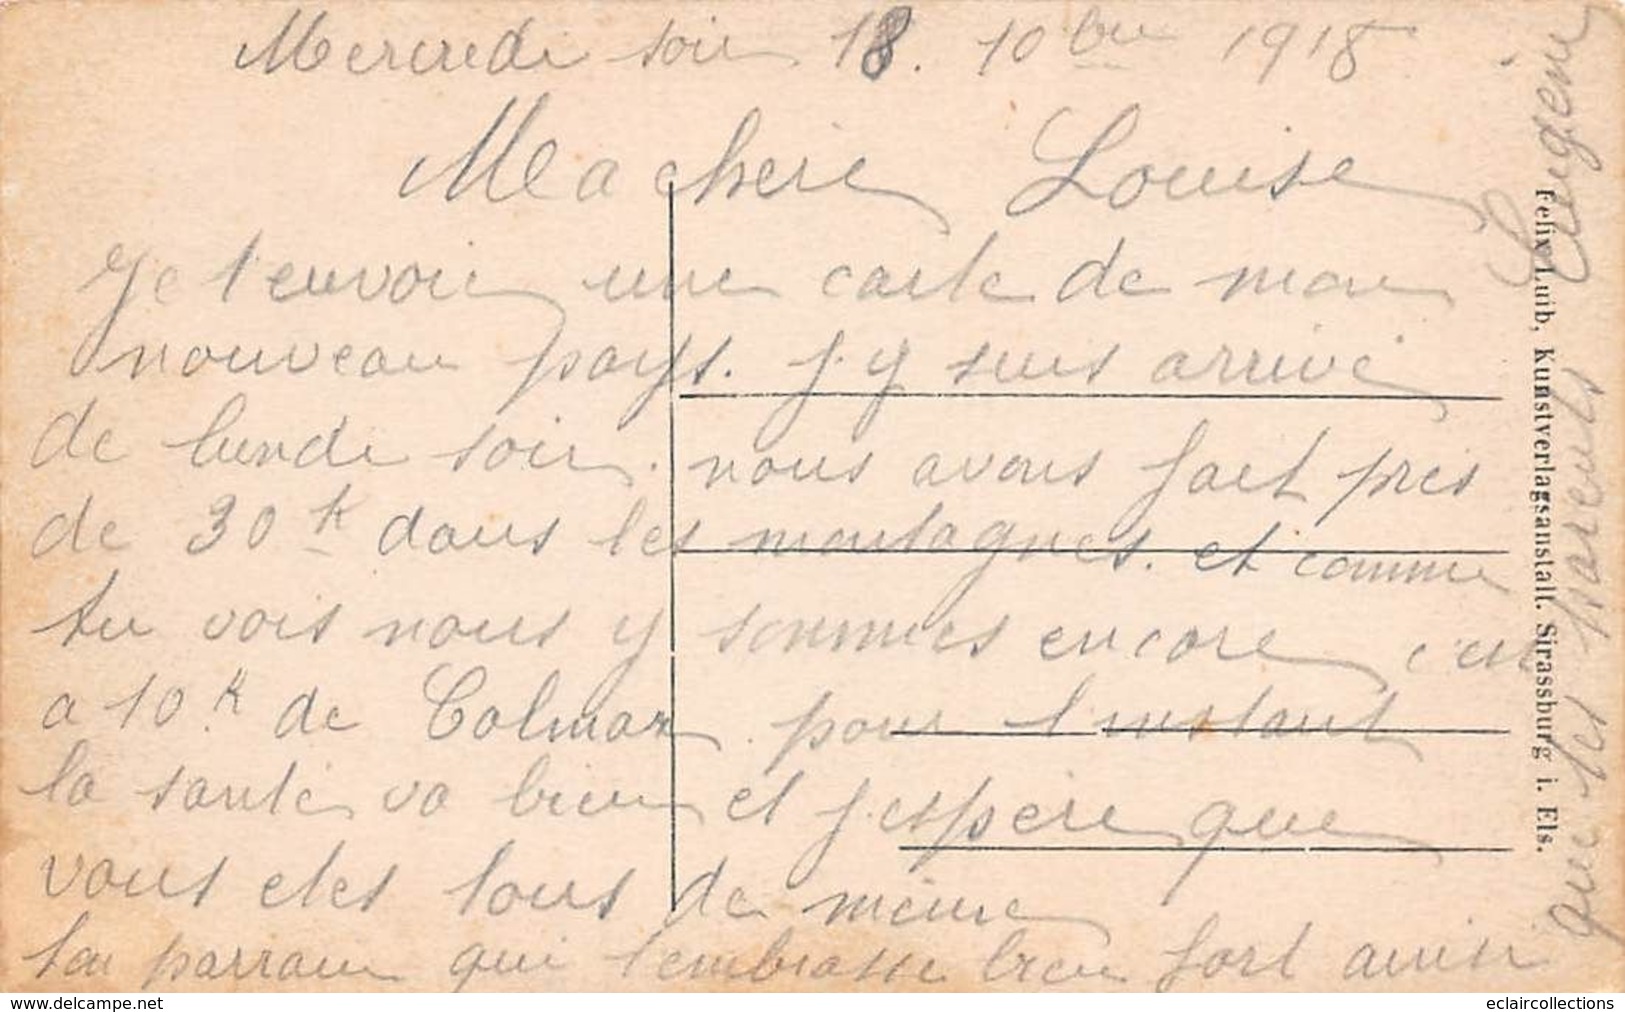 Mercredi soir 18. 10bre 1918
Ma chere Louise
Je t'envoie une carte de mon
nouveau pays. j.y suis arrivé
de lundi soir. nous avons fait près
de 30k dans les montagnes. et comme
tu vois nous y sommes encore c'est
a 10k de Colmar pour l'instant
la santé va bien et j.espère que
vous etes tous de meme
ton parrain qui t'embrasse bien fort ainsi
que tes parents Eugene
Felix Luib, Kunstverlagsanstalt. Strassburg i. Els.
www.delcampe.net
eclaircollections